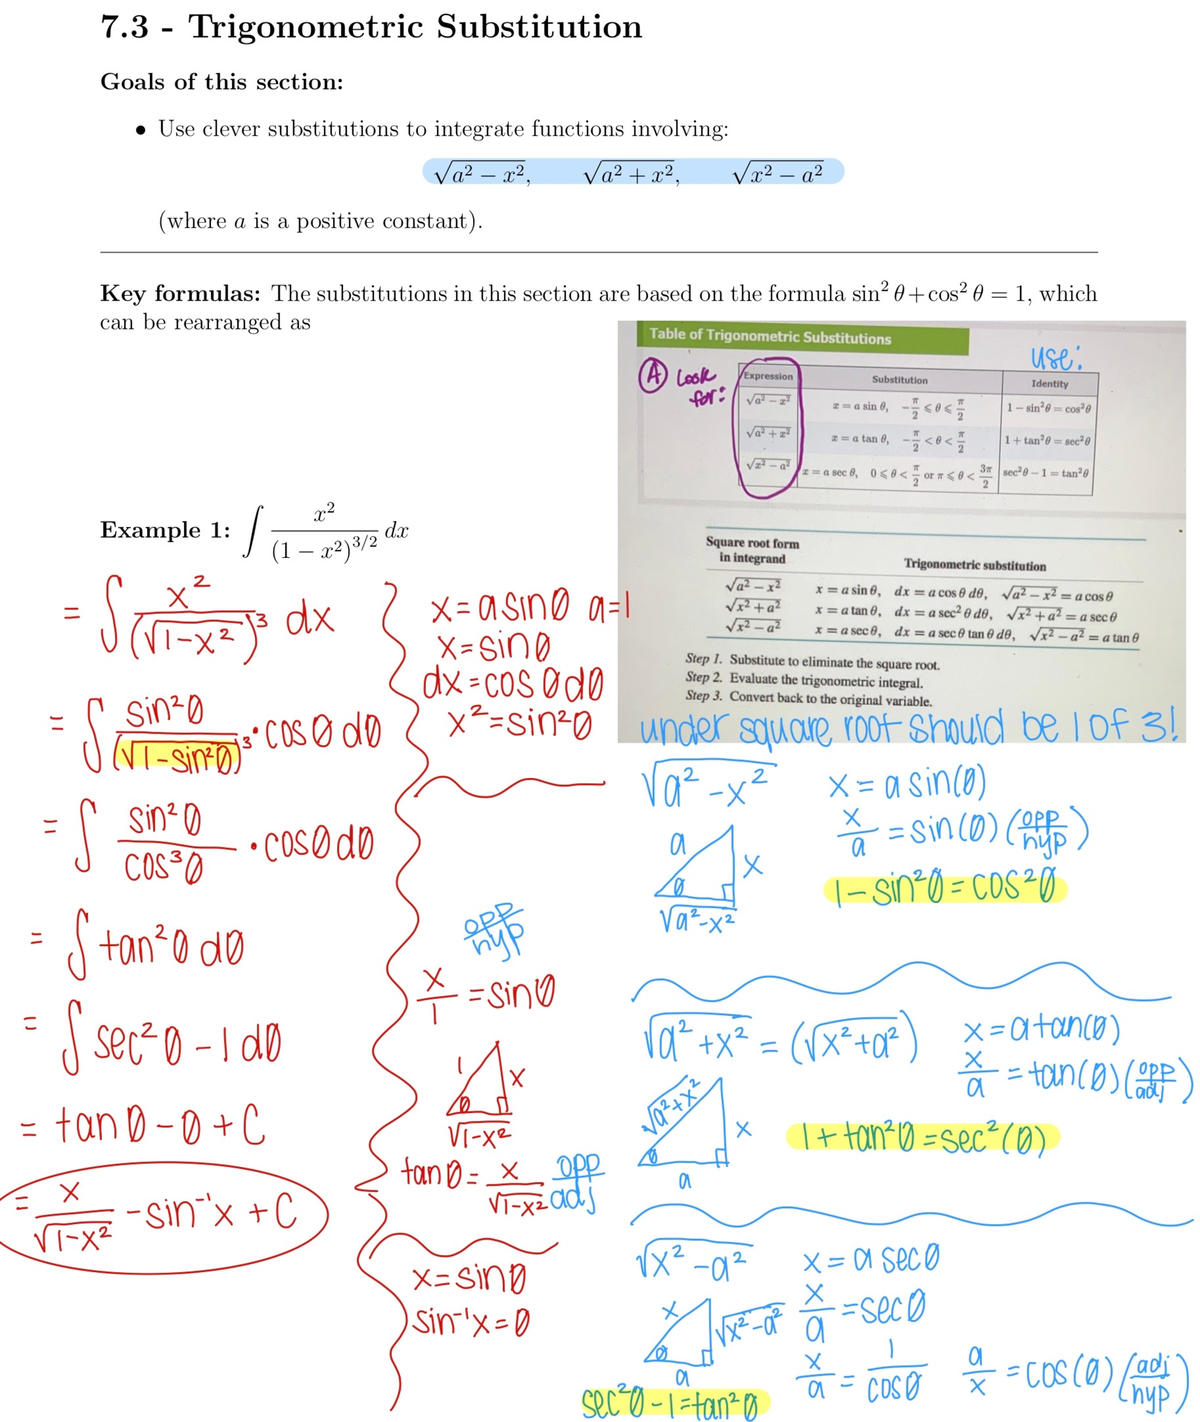 7.3 - Trigonometric Substitution
Goals of this section:
• Use clever substitutions to integrate functions involving:
√(a² − x²), √(a² + x²), √(x² − a²)
(where a is a positive constant).
Key formulas: The substitutions in this section are based on the formula sin² θ + cos² θ = 1, which
can be rearranged as
Table of Trigonometric Substitutions
use:
Ⓐ Look for:
Expression Substitution Identity
√(a² − x²) x = a sin θ, −π/2 ⩽ θ ⩽ π/2 1 − sin²θ = cos²θ
√(a² + x²) x = a tan θ, −π/2 < θ < π/2 1 + tan²θ = sec²θ
√(x² − a²) x = a sec θ, 0 ⩽ θ < π/2 or π ⩽ θ < 3π/2 sec²θ − 1 = tan²θ
Square root form
in integrand Trigonometric substitution
√(a² − x²) x = a sin θ, dx = a cos θ dθ, √(a² − x²) = a cos θ
√(x² + a²) x = a tan θ, dx = a sec² θ dθ, √(x² + a²) = a sec θ
√(x² − a²) x = a sec θ, dx = a sec θ tan θ dθ, √(x² − a²) = a tan θ
Step 1. Substitute to eliminate the square root.
Step 2. Evaluate the trigonometric integral.
Step 3. Convert back to the original variable.
Example 1: ∫ x²/(1 − x²)^(3/2) dx
= ∫ x²/(√(1-x²))³ dx
= ∫ sin²θ/(√(1-sin²θ))³ · cosθ dθ
= ∫ sin²θ/cos³θ · cosθ dθ
= ∫ tan²θ dθ
= ∫ sec²θ - 1 dθ
= tanθ - θ + C
= x/√(1-x²) - sin⁻¹x + C
x = a sinθ a=1
x = sinθ
dx = cosθ dθ
x² = sin²θ
opp/hyp
x/1 = sinθ
1
x
θ
√(1-x²)
tanθ = x/√(1-x²) opp/adj
x = sinθ
sin⁻¹x = θ
under square root should be 1 of 3!
√(a²-x²) x = a sin(θ)
x/a = sin(θ) (opp/hyp)
a
x
θ
√(a²-x²)
1 - sin²θ = cos²θ
√(a²+x²) = (√(x²+a²)) x = a tan(θ)
x/a = tan(θ) (opp/adj)
√(a²+x²)
x
θ
a
1 + tan²θ = sec²(θ)
√(x²-a²) x = a secθ
x/a = secθ
x
√(x²-a²)
θ
a
x/a = 1/cosθ a/x = cos(θ) (adj/hyp)
sec²θ - 1 = tan²θ